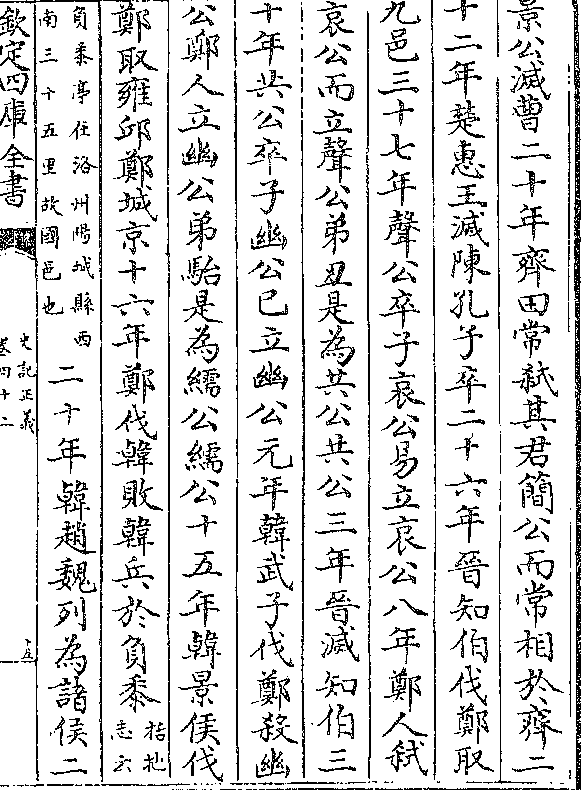 景公滅曹二十年齊田常弒其君簡公而常相於齊二
十二年楚惠王滅陳孔子卒二十六年晉知伯伐鄭取
九邑三十七年聲公卒子哀公易立哀公八年鄭人弒
哀公而立聲公弟丑是為共公共公三年晉滅知伯三
十年共公卒子幽公已立幽公元年韓武子伐鄭殺幽
公鄭人立幽公弟駘是為繻公繻公十五年韓景侯伐
鄭取雍邱鄭城京十六年鄭伐韓敗韓兵於負黍括地
志云
負黍亭在洛州陽城縣西
南三十五里故國邑也
二十年韓趙魏列為諸侯二
欽定四庫全書
史記正義
卷四十二